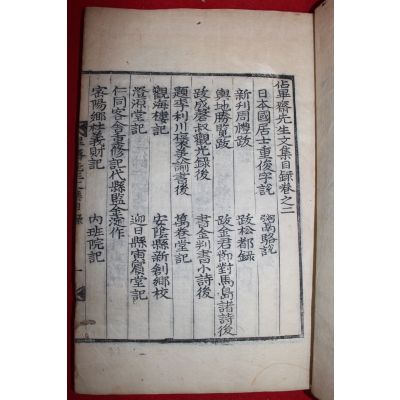 佔畢齋先生文集目錄卷之二
日本國居士重俊字說 海南駱說
新刊周禮跋 跋松都錄
輿地勝覽跋 跋金君節對馬島諸詩後
跋成磬叔觀光錄後 書金判書小詩後
題李利川 諭書後 萬卷堂記
觀海樓記 安陰縣新創鄉校
澄源堂記 迎日縣寅賓堂記
仁同客舍重修記代縣監金 作
密陽鄉社義財記 內班院記